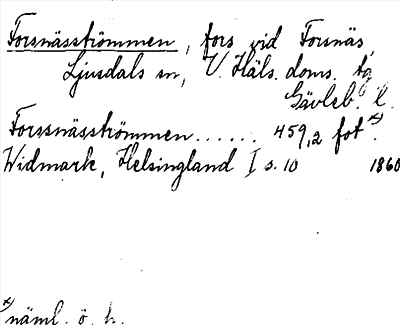 Forsnäsströmmen, fors vid Forsnäs,
Ljusdals sn, V. Häls. doms. tg
Gävleb. l.
Forssnäsströmmen...... 459,2 fot x).
Widmark, Helsingland I s. 10 1860
x) näml. ö. h.